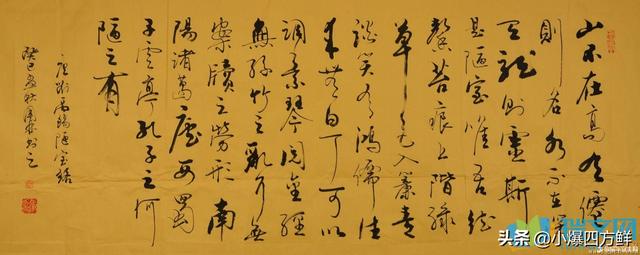 山不在高有僊
則名水不在深
有龍則靈斯
是陋室惟吾德
馨苔痕上階綠
草色入簾青
談笑有鴻儒往
來無白丁可以
調素琴閱金經
無絲竹之亂耳無
案牘之勞形南
陽諸葛廬西蜀
子雲亭孔子云何
陋之有
唐劉禹錫陋室銘
癸巳孟秋 書之
瑞文网
头条 @小爆四方鲜